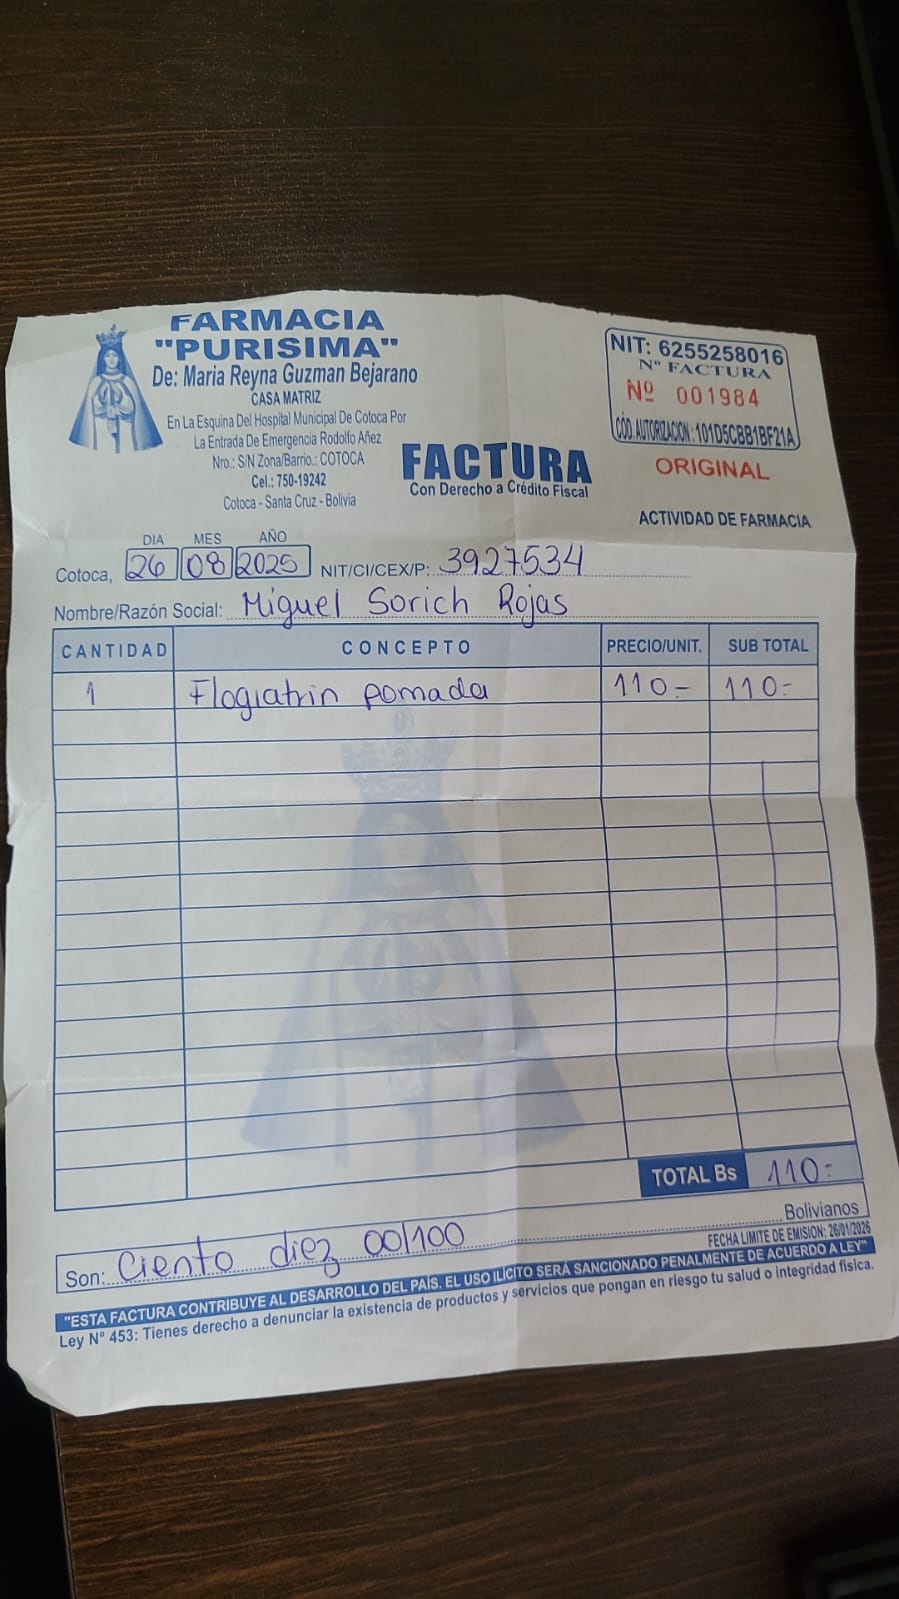 FARMACIA
"PURISIMA"
De: Maria Reyna Guzman Bejarano
CASA MATRIZ
En La Esquina Del Hospital Municipal De Cotoca Por
La Entrada De Emergencia Rodolfo Añez
Nro.: S/N Zona/Barrio.: COTOCA
Cel.: 750-19242
Cotoca - Santa Cruz - Bolivia
FACTURA
Con Derecho a Crédito Fiscal
NIT: 6255258016
Nº FACTURA
Nº 001984
CÓD. AUTORIZACION: 101D5CBB1BF21A
ORIGINAL
ACTIVIDAD DE FARMACIA
DIA MES AÑO
Cotoca, 26 08 2025 NIT/CI/CEX/P: 3927534
Nombre/Razón Social: Miguel Sorich Rojas
CANTIDAD CONCEPTO PRECIO/UNIT. SUB TOTAL
1 Flogiatrin pomada 110- 110-
TOTAL Bs 110-
Son: Ciento diez 00/100 Bolivianos
FECHA LIMITE DE EMISION: 26/01/2026
"ESTA FACTURA CONTRIBUYE AL DESARROLLO DEL PAÍS. EL USO ILÍCITO SERÁ SANCIONADO PENALMENTE DE ACUERDO A LEY"
Ley N° 453: Tienes derecho a denunciar la existencia de productos y servicios que pongan en riesgo tu salud o integridad física.